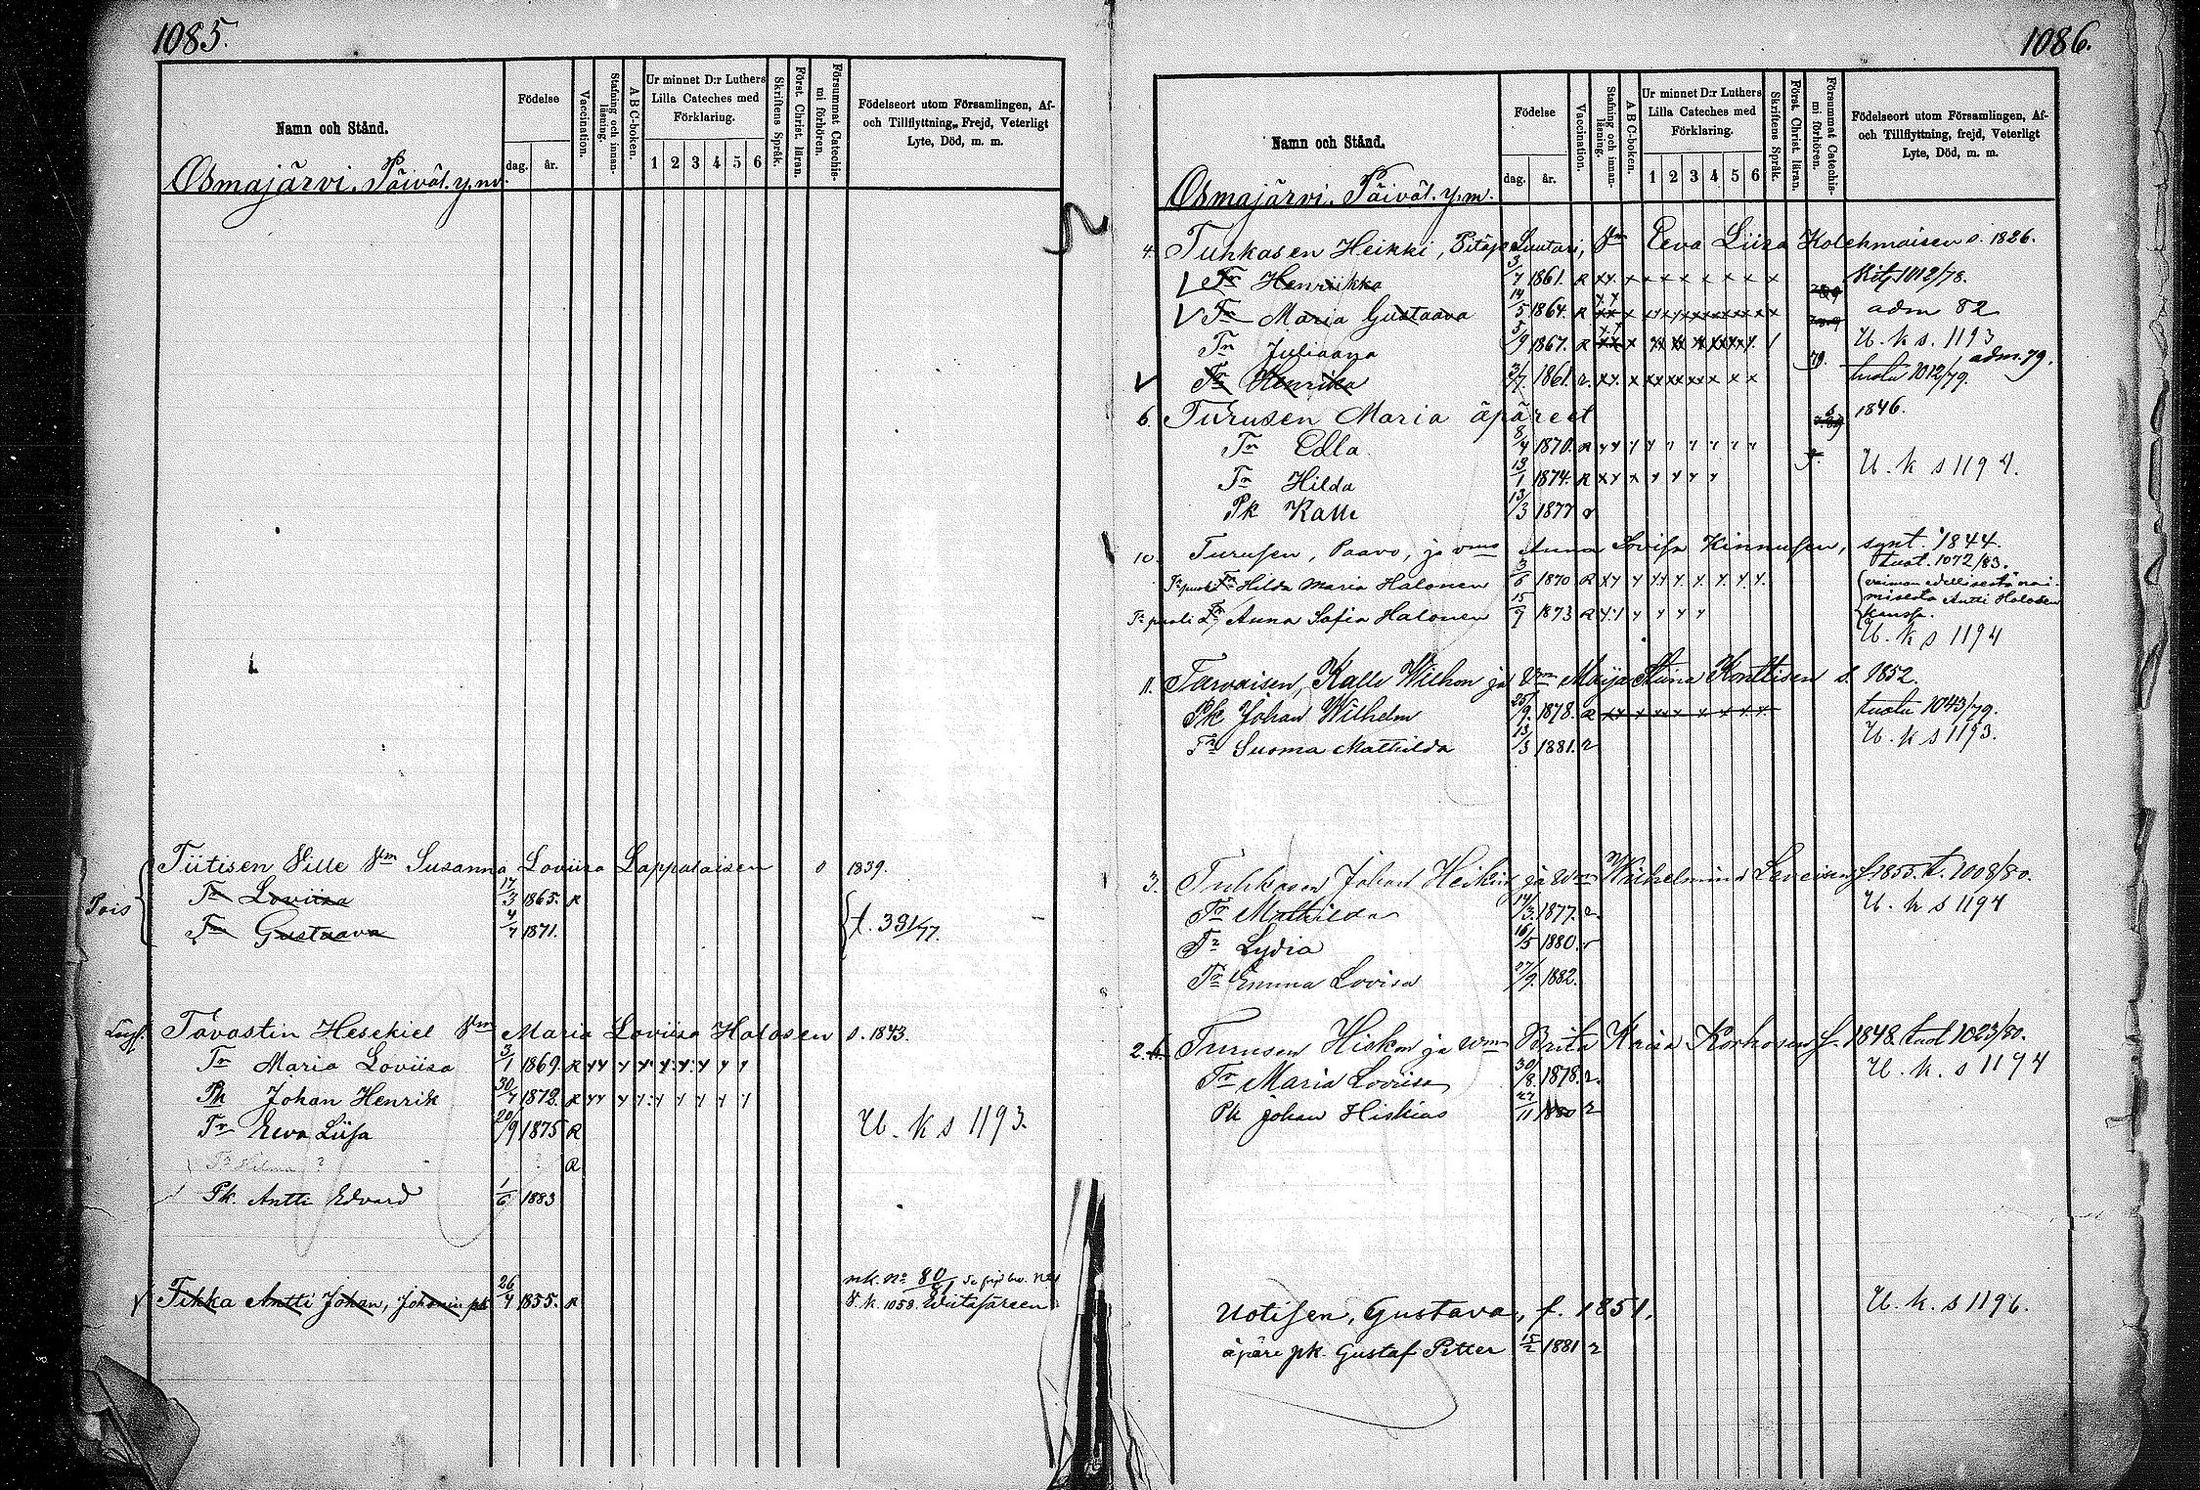 1085.
Namn och Stånd.
Födelse
dag.
år.
Vaccination.
Stafning och innan-
läsning.
A B C-boken.
Ur minnet D:r Luthers
Lilla Cateches med
Förklaring.
1 2 3 4 5 6
Skriftens Språk.
Först. Christ. läran.
Försummat Catechis-
mi förhören.
Födelseort utom Församlingen, Af-
och Tillflyttning, Frejd, Veterligt
Lyte, Död, m. m.
Osmajärvi. Päiväl. y. m.
Tiitisen Ville Vm Susanna Loviisa Lappalaisen o 1839.
Pois
Tr Loviisa 17/3 1865. R
Tr Gustaava 4/4 1871.
t. 331/77.
Tavastin Hesekiel Vm Maria Loviisa Halosen s. 1843.
Tr Maria Loviisa 3/1 1869. R
Pk Johan Henrik 30/4 1872. R
Tr Eeva Liisa 20/9 1875 R
U. k s 1193.
Tr Hilma ? ? R
Pk. Antti Edvard 1/6 1883
Tikka Antti Johan, Johanin pk 26/4 1855. R
nk. No 80/81
V. k. 1058.
1086.
Namn och Stånd.
Födelse
dag.
år.
Vaccination.
Stafning och innan-
läsning.
A B C-boken.
Ur minnet D:r Luthers
Lilla Cateches med
Förklaring.
1 2 3 4 5 6
Skriftens Språk.
Först. Christ. läran.
Försummat Catechis-
mi förhören.
Födelseort utom Församlingen, Af-
och Tillflyttning, frejd, Veterligt
Lyte, Död, m. m.
Osmajärvi. Päiväl. y. m.
4. Tuhkasen Heikki, Pitäj. Suutari, Vm Eeva Liisa Kolehmaisen s. 1826.
Tr Henriikka 3/7 1861. R 1012/78.
Tr Maria Gustaava 14/5 1864. R adm 82
Tr Juliaana 5/9 1867. R U. k s. 1193
adm. 79.
Tr Henrika 3/7. 1861. r. tuotu 1012/79.
6. Turusen Maria äpäreet s 1846.
Tr Edla 8/4 1870. R
Tr Hilda 13/1 1874. R U. k s 1194.
Pk Kalle 13/3 1877 r
10. Turusen, Paavo, ja vms Anna Lovisa Kinnusen, synt. 1844
tuot. 1072/83.
Tr puoli Hilda Maria Halonen 3/6 1870 R
vaimon edellisestä nai-
misesta Antti Halosen
kanssa.
Tr puoli Anna Sofia Halonen 15/9 1873 R
U. k s 1194
11. Tarvaisen, Kalle Wilhon ja Vm Maija Stiina Konttisen s. 1852.
Pk Johan Wilhelm 25/9. 1878. R tuotu 1043/79.
Tr Suoma Mathilda 13/3 1881. r U. k s 1193.
3. Tuhkasen Johan Heikin ja wm Wilhelmina Leveisen s. 1855. t. 1008/80.
Tr Mathilda 14/3. 1877. r U. k s 1194
Tr Lydia 16/5 1880. r
Tr Emma Lovisa 27/9. 1882.
2. Turusen Hiskon ja wm Brita Kaisa Korhosen s. 1848. tuot 1023/80.
Tr Maria Loviisa 30/8. 1878. r. U. k. s 1194
Pk Johan Hiskias 27/11 1880 r
Uotisen, Gustava, s. 1851. U. k. s 1196.
äpäre pk. Gustaf Petter 15/2 1881 r